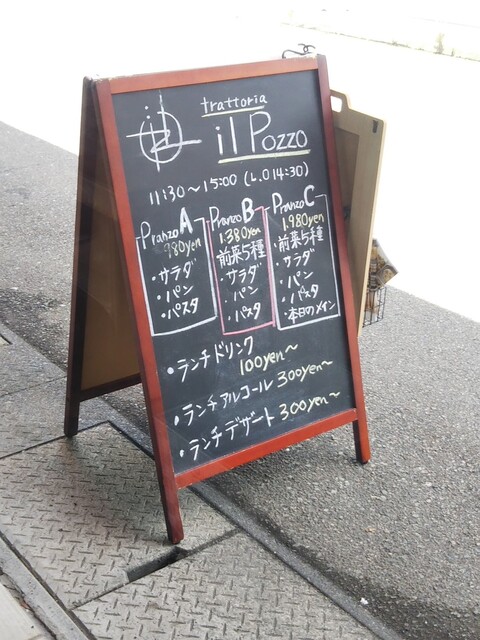 trattoria
il Pozzo
11:30～15:00 (L.O 14:30)
Pranzo A
980yen
・サラダ
・パン
・パスタ
Pranzo B
1.380yen
前菜5種
・サラダ
・パン
・パスタ
Pranzo C
1.980yen
・前菜5種
・サラダ
・パン
・パスタ
・本日のメイン
・ランチドリンク
100yen～
・ランチアルコール 300yen～
・ランチデザート 300yen～